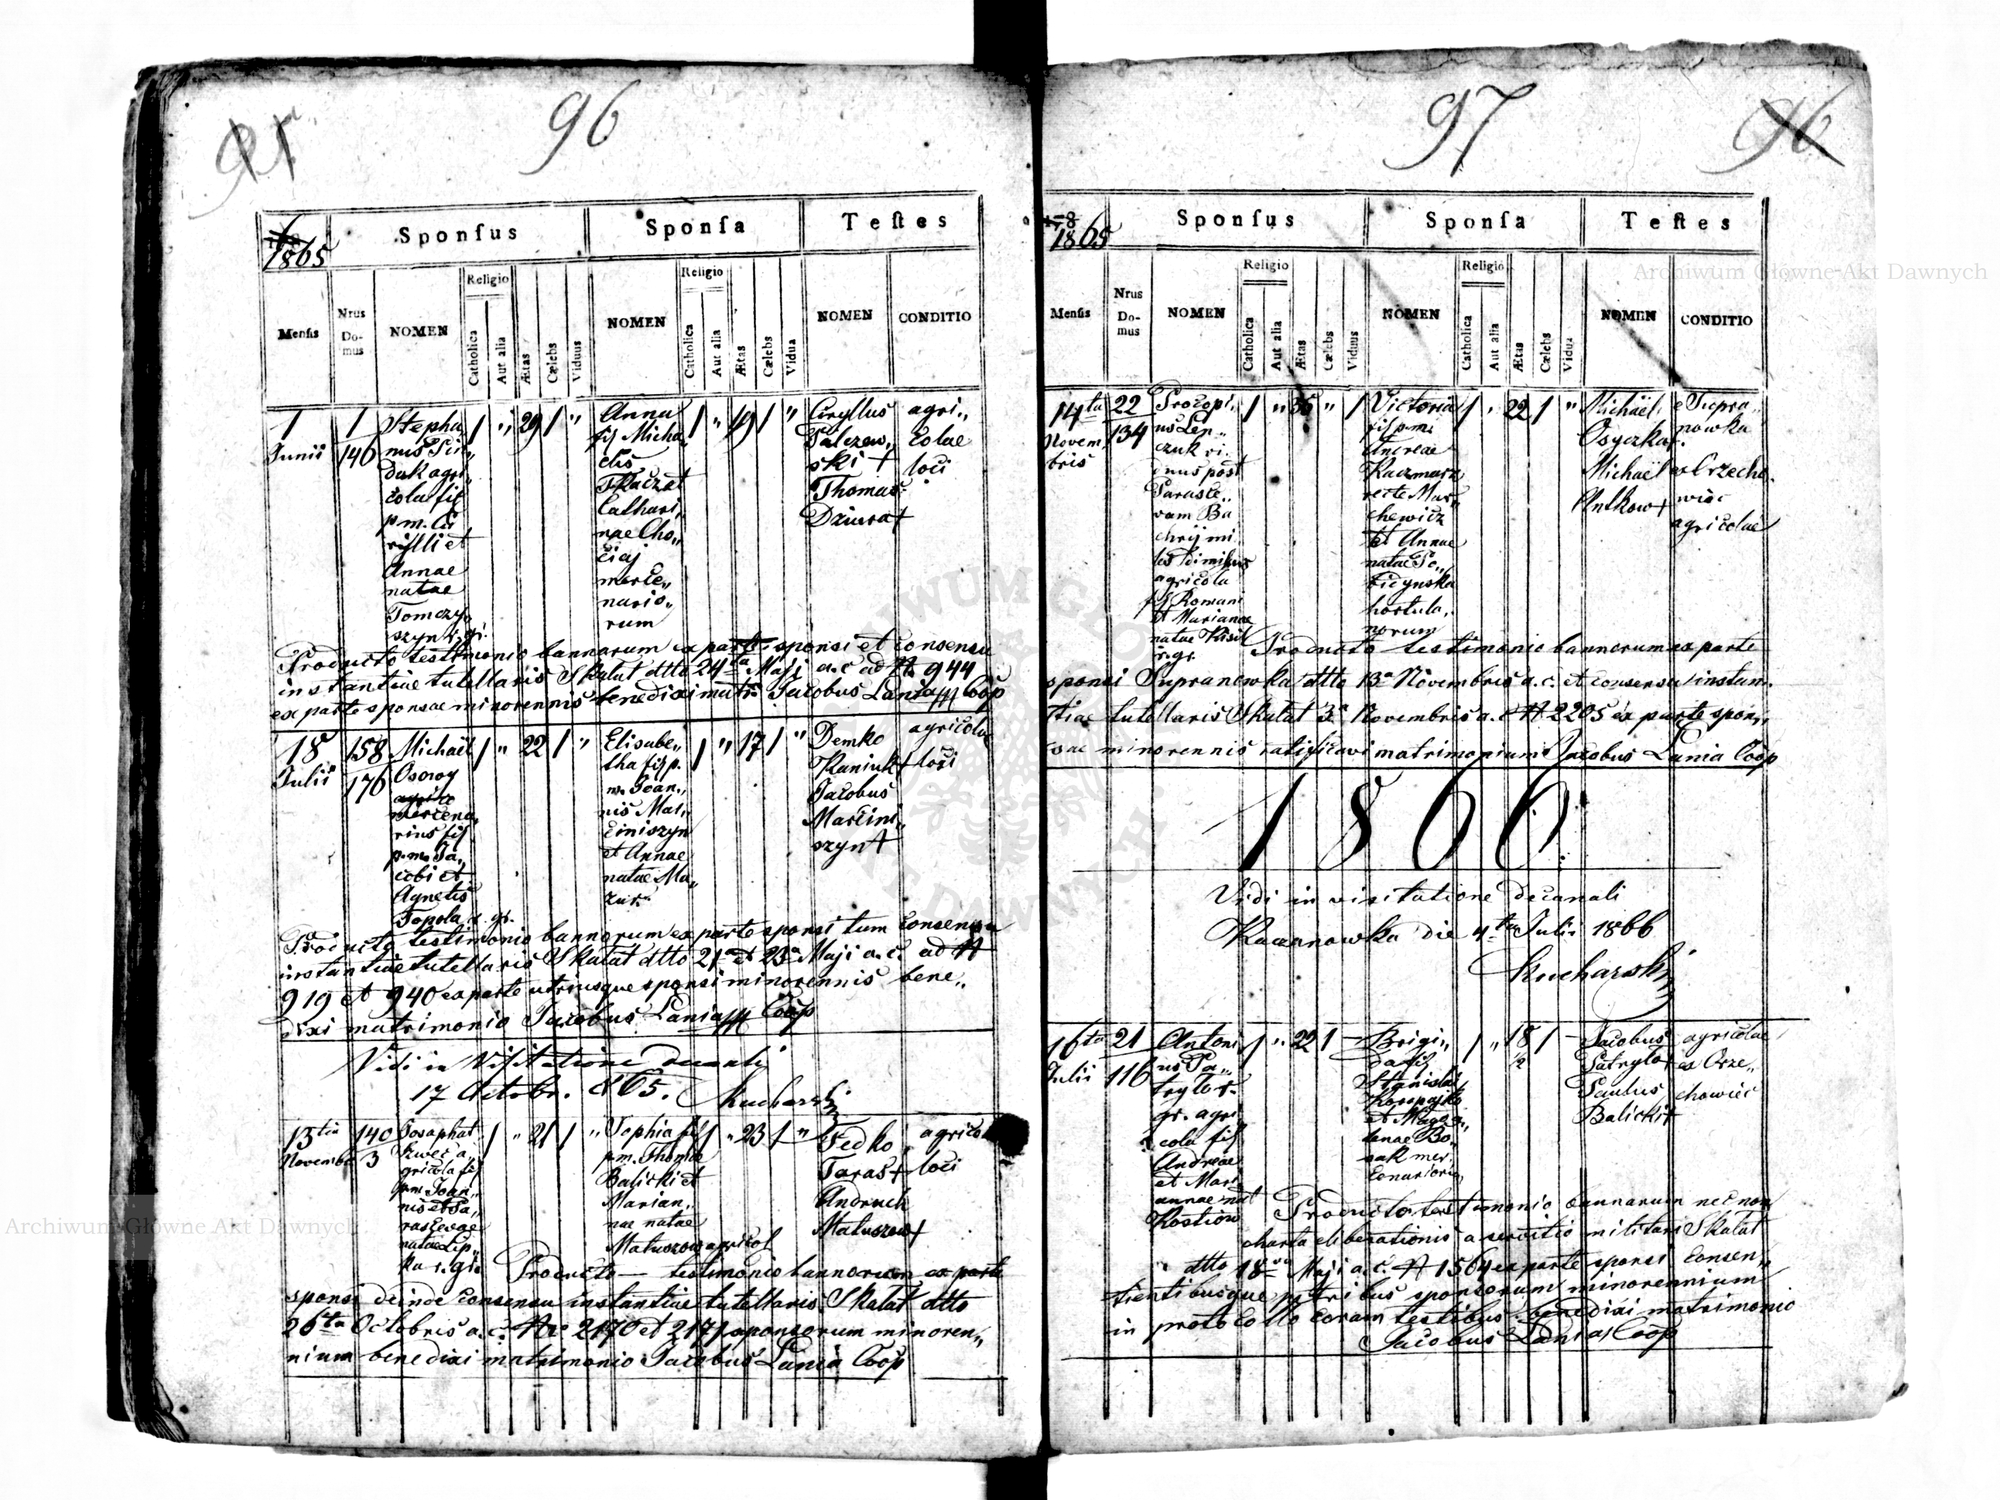 96
1865
Sponſus
Sponſa
Teſtes
Menſis
Nrus
Do-
mus
NOMEN
Religio
Catholica
Aut alia
Ætas
Cælebs
Viduus
NOMEN
Religio
Catholica
Aut alia
Ætas
Cælebs
Vidua
NOMEN
CONDITIO
1
Junii
1
146
Stepha
agri„
cola fil
p.m. Cy
rylli et
Annae
natae
Tomczy„
szyn r. gr.
29
Anna
fil Micha
elis
Tkaczat
Cathari„
nae Cho„
merce„
nario„
rum
19
Cyryllus
Palczew„
ski +
Thomas
Dziura +
agri„
colae
loci
Producto testimonio bannorum ex parte sponsi et consensu
instantiae tutellaris Skalat dtto 24ta Maji a.c. ad N 944
ex parte sponsae minorennis benedixi matri Jacobus Lania Coop
18
Julii
158
176
Michaël
Osowy
mercena„
rius fil
p.m. Ja„
cobi et
Agnetis
Topola r. gr.
22
Elisabe„
tha fil p.
m. Joan„
nis Mar„
ciniszyn
et Annae
natae Ma„
zur
17
Demko
Kaniuk +
Jacobus
Marcini„
szyn +
agricolae
loci
Producto testimonio bannorum ex parte sponsi tum consensu
instantiae tutellaris Skalat dtto 21a et 23a Maji a.c. ad N
919 et 940 ex parte utriusque sponsi minorennis bene„
dixi matrimonio Jacobus Lania Coop
Vidi in Visitatione decanali
17 Octobr. 865. Kucharski
13tia
Novemb
140
3
Josaphat
Kwec a„
gricola fil
p.m. Joan„
nis et Pa„
natae Lip„
ka r. gr.
21
Sophia fil
p.m. Thomae
Balicki et
Marian„
nae natae
Matuszow agricol
23
Fedko
Taras +
Andruch
Matuszew +
agricol
loci
Producto testimonio bannorum ex parte
sponsi deinde consensu instantiae tutellaris Skalat dtto
26ta Octobris a.c. Nro 2170 et 2171 sponsorum minoren„
nium benedixi matrimonio Jacobus Lania Coop
97
96
1865
Sponſus
Sponſa
Teſtes
Menſis
Nrus
Do-
mus
NOMEN
Religio
Catholica
Aut alia
Ætas
Cælebs
Viduus
NOMEN
Religio
Catholica
Aut alia
Ætas
Cælebs
Vidua
NOMEN
CONDITIO
14ta
Novem
bris
22
134
Procopi„
us Lep„
czuk vi„
duus post
Parasce„
vam Ba
chrij mi
les dimissus
agricola
fil Romani
et Marianae
natae
r. gr.
35
Victoria
fil p.m.
Andreae
Kaczmarz
recte Mar„
chewicz
et Annae
natae
hortula„
norum
22
Michaël
Osyczka +
Michaël
Antkow +
e Supra„
nowka
ex Orzecho„
wiec
agricolae
Producto testimonio bannorum ex parte
sponsi Supranowka dtto 13a Novembris a.c. et consensu instan„
tiae tutellaris Skalat 3a Novembris a.c. N 2205 ex parte spon„
sae minorennis ratificavi matrimonium Jacobus Lania Coop
1866.
Vidi in visitatione decanali
Kaczanowka die 4ta Julii 1866
Kucharski
16ta
Julii
21
116
Antoni
us Pa„
tryło r.
gr. agri
cola fil
Andreae
et Mari
annae nat
Kostiow
22
Brigi„
da fil
Stanislai
et Magda„
lenae Bo
sak mer„
cenariorum
18
½
Jacobus
Patryło +
Paulus
Balicki +
agricolae
ex Orze„
chowiec
Producto testimonio bannorum nec non
charta eliberationis a servitio militari Skalat
dtto 18va Maji a.c. N 1564 ex parte sponsi consen„
tientibusque patribus sponsorum minorennium
in protocollo coram testibus benedixi matrimonio
Jacobus Lania Coop
Archiwum Główne Akt Dawnych
Archiwum Główne Akt Dawnych